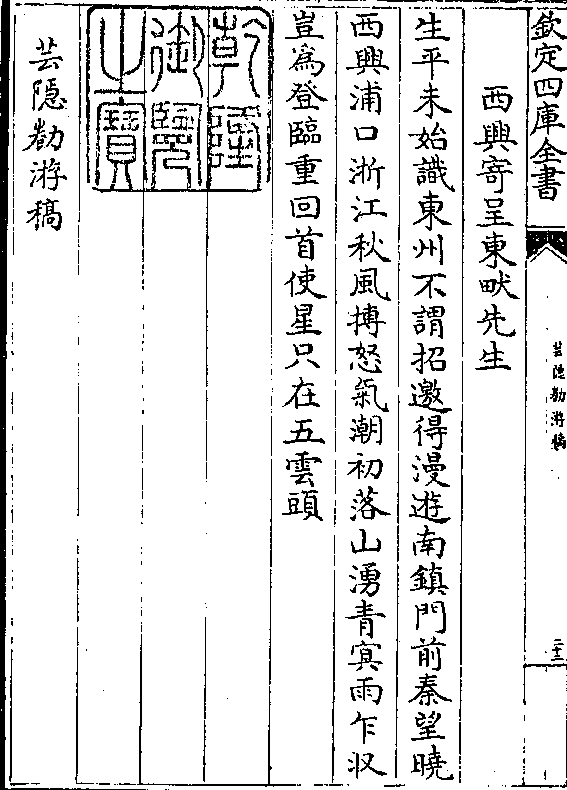 欽定四庫全書
芸隱勌游稿
二十三
西興寄呈東畎先生
生平未始識東州不謂招邀得漫遊南鎮門前秦望曉
西興浦口浙江秋風搏怒氣潮初落山湧青㝠雨乍収
豈為登臨重回首使星只在五雲頭
乾隆
御覽
之寶
芸隱勌游稿